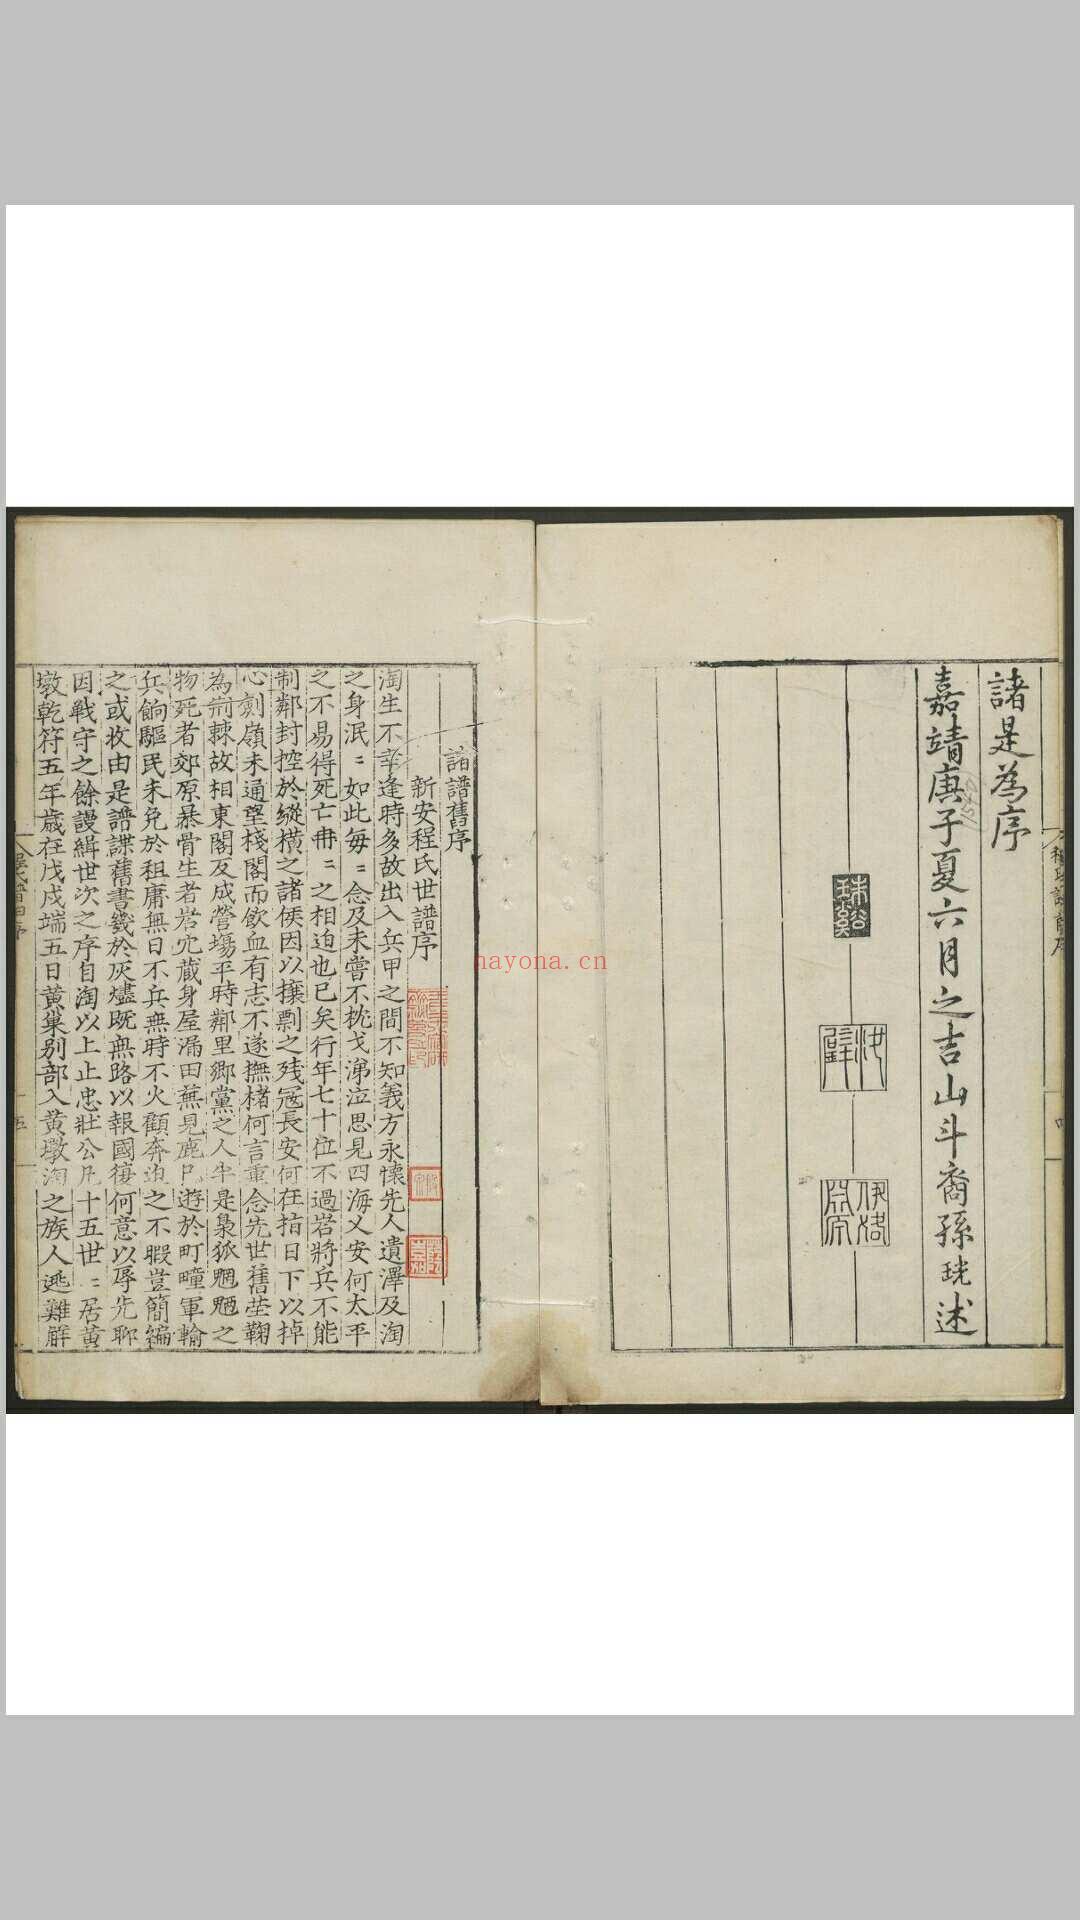 諸是為序
嘉靖庚子夏六月之吉山斗裔孫珖述
諸譜舊序
新安程氏世譜序
淘生不幸逢時多故出入兵甲之間不知義方永懷先人遺澤及淘
之身泯〻如此每〻念及未嘗不枕戈涕泣思見四海乂安何太平
之不易得死亡冉〻之相迫也已矣行年七十位不過岩將兵不能
制鄰封控於縱橫之諸侯因以攘剽之残冦長安何在指日下以掉
心劍嶺未通望棧閣而飲血有志不遂撫楮何言重念先世舊塋鞠
為荊棘故相東閣反成營塲平時鄰里鄉黨之人半是梟狐魍魎之
物死者郊原暴骨生者岩穴藏身屋漏田蕪見鹿尸遊於町疃軍輸
兵餉驅民未免於租庸無日不兵無時不火顧奔迫之不暇豈簡編
之或收由是譜諜舊書幾於灰燼既無路以報國復何意以辱先聊
因戦守之餘謾緝世次之序自淘以上止忠壯公凡十五世〻居黄
墩乾符五年歳在戊戌端五日黄巢别部入黄墩淘之族人逃難解
nayona.cn